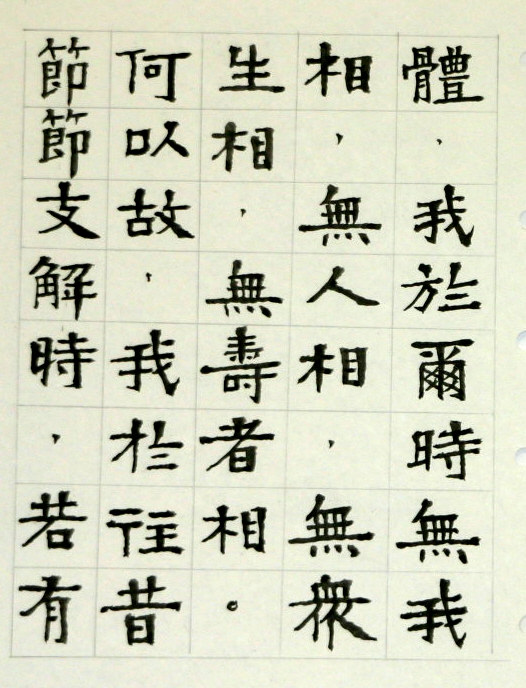 體，我於爾時無我
相，無人相，無衆
生相，無壽者相。
何以故，我於往昔
節節支解時，若有